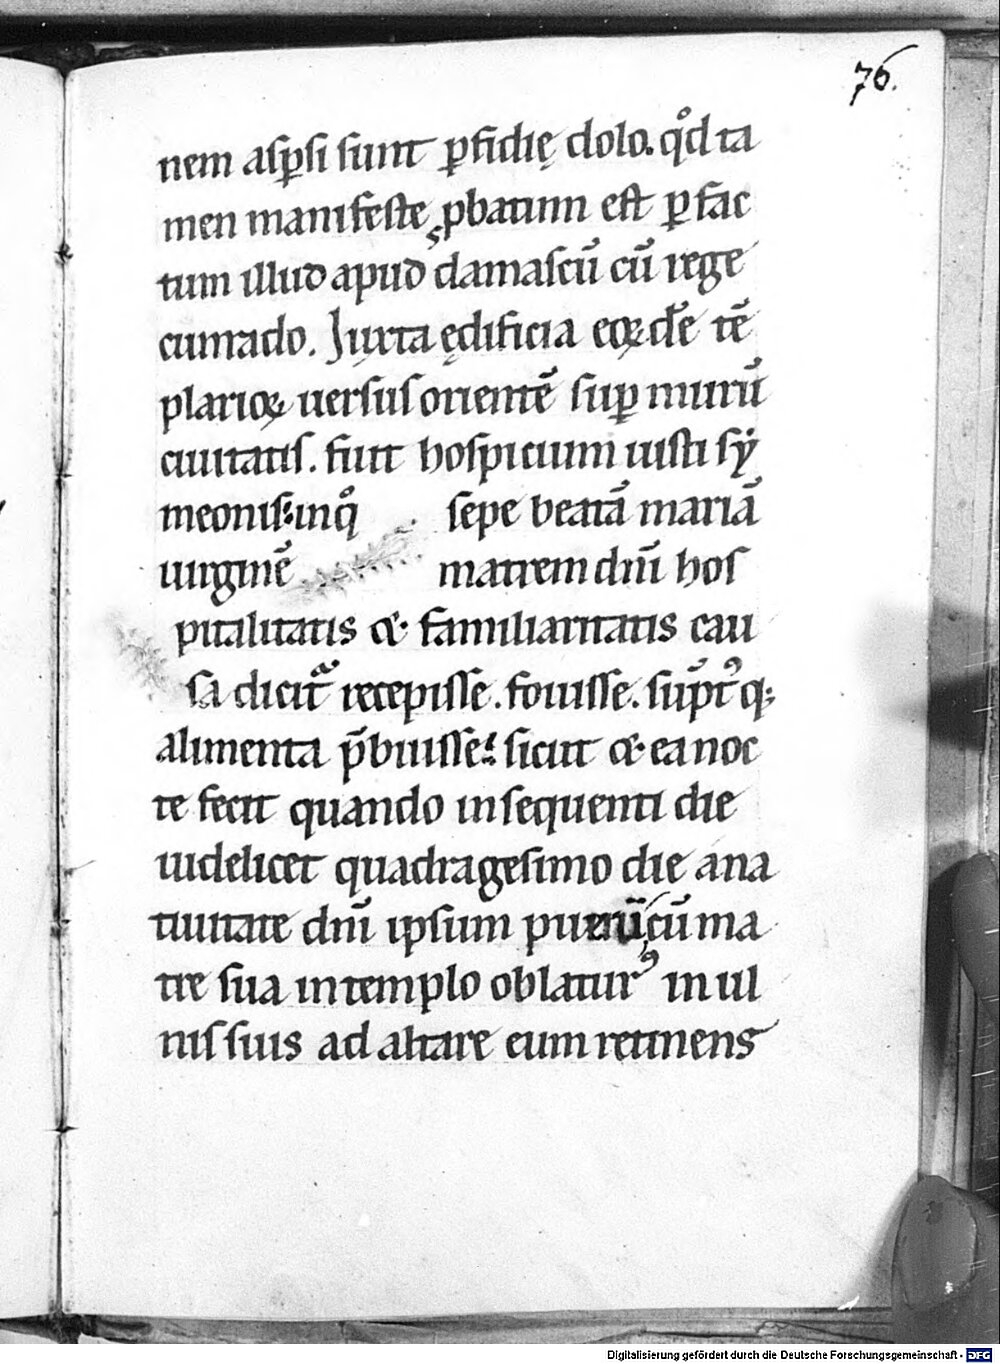 76.
nem aspsi sunt pfidię dolo. qd ta
men manifeste pbatum est p fac
tum illud apud damascū cū rege
cunrado. Juxta ędificia eoꝝdē tē
plarioꝝ uersus orientē sup murū
ciuitatis. fuit hospicium iusti sẏ
meonis in qͦ sepe beatā mariā
uirginē matrem dn̄i hos
pitalitatis & familiaritatis cau
sa dicit᷑ recepisse. fouisse. sūptꝰq;
alimenta p̄buisse. sicut & ea noc
te fecit quando insequenti die
uidelicet quadragesimo die a na
tiuitate dn̄i ipsum puerū cū ma
tre sua in templo oblaturꝰ in ul
nis suis ad altare eum retinens
Digitalisierung gefördert durch die Deutsche Forschungsgemeinschaft - DFG